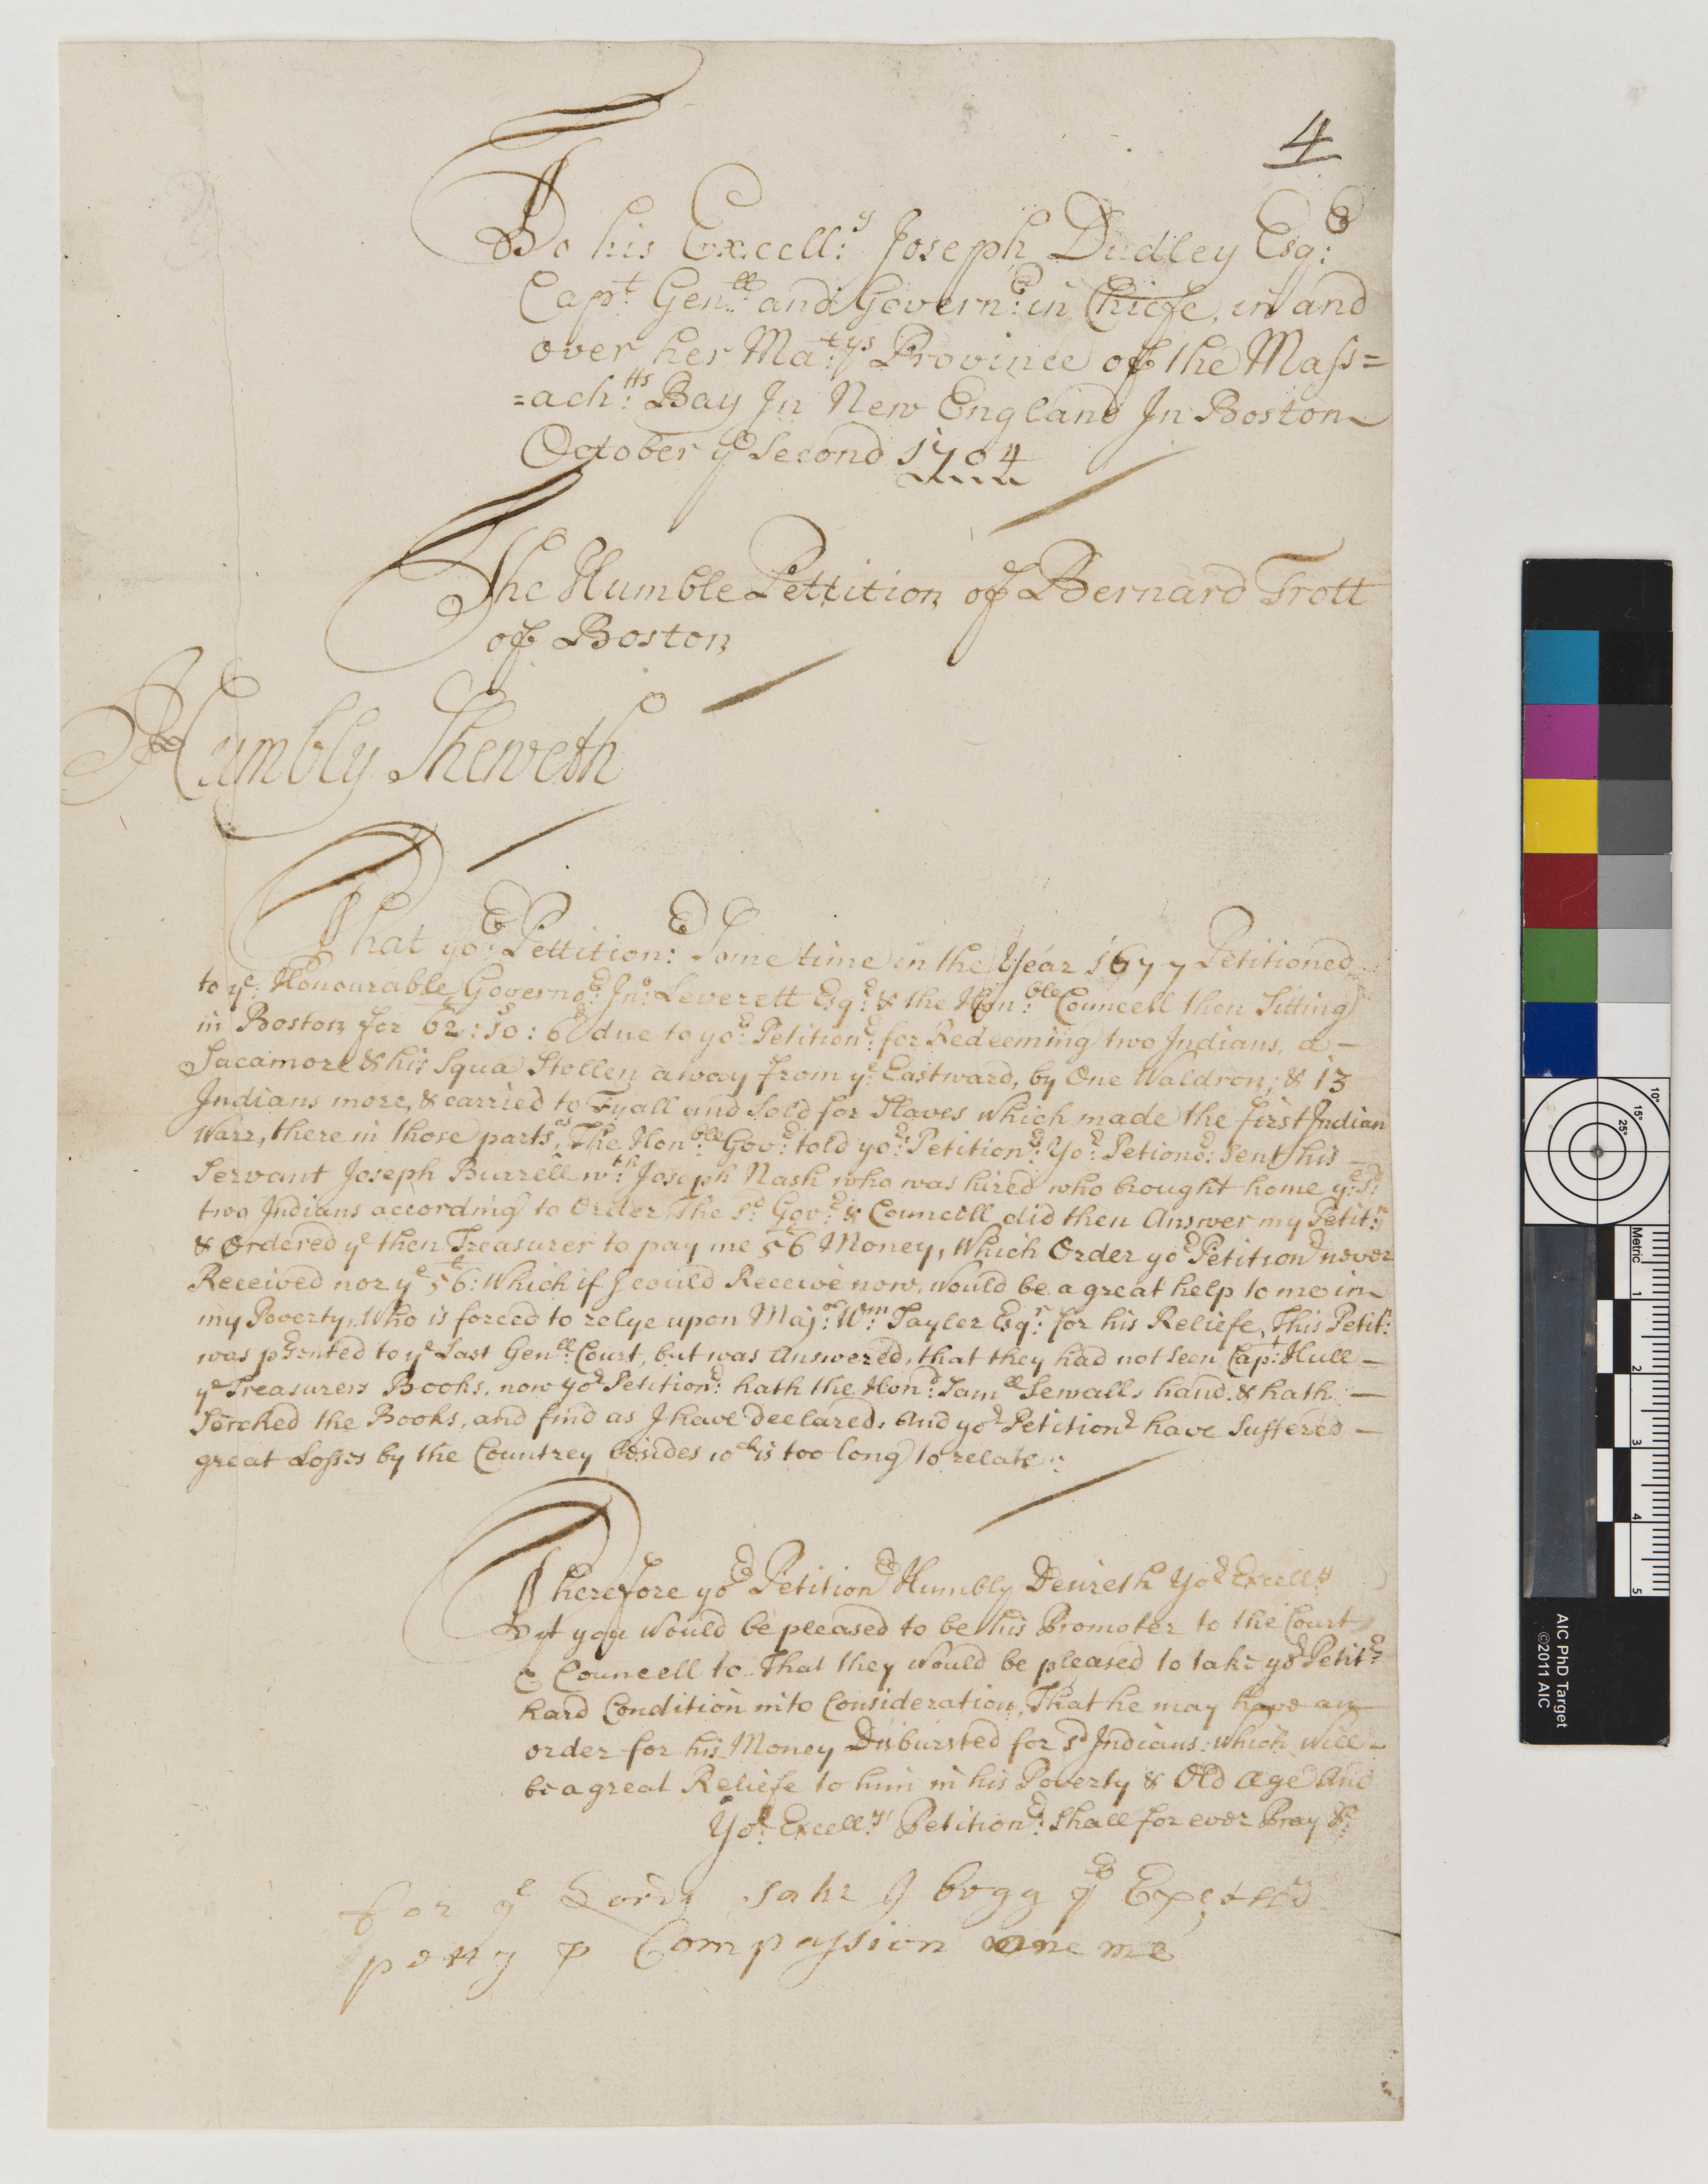 4
To his Excell:y Joseph Dudley Esq:r
Capt: Genll: and Govern:r in Chiefe, in and
over her Matys: Province of the Mass=
=achtts: Bay In New England In Boston
October ye Second 1704
The Humble Pettition of Bernard Trott
of Boston
Humbly Sheweth
That yor: Pettition:r Some time in the Year 1677 Petitioned
to ye: Honourable Governor: Jno: Leverett Esqr: & the Honble: Councell then Sitting
in Boston for 62:10:6 due to yor: Petitionr: for Redeeming two Indians, a
Sacamore & his Squa Stollen away from ye Eastward, by One Waldron; & 13
Indians more, & carried to Fyall and Sold for Slaves which made the first Indian
Warr, there in those parts, as The Honble: Govr: told yor: Petitionr: Yor: Petionr: Sent his
Servant Joseph Burrell wth: Joseph Nash who was hired who brought home ye: sd:
two Indians according to Order, The sd: Govr: & Councell did then Answer my Petitn:
& Ordered ye then Treasurer to pay me 56£ Money, Which Order yor Petitionr never
Received nor ye 56£: Which if I could Receive now, would be a great help to me in
my Poverty, Who is forced to relye upon Majr: Wm: Tayler Esqr: for his Reliefe, This Petitn:
was prsented to ye Last Genll: Court, but was Answered, that they had not seen Capt: Hull
ye Treasurers Books, now yor Petitionr: hath the Honr: Samll Sewalls hand. & hath
Serched the Books, and find as I have Declared. And yor Petitionr have Suffered
great Losses by the Countrey besides wch is too long to relate:
Therefore yor Petitionr Humbly Desireth Yor Excelly
yt you Would be pleased to be his Promoter to the Court
& Councell to That they Would be pleased to take yor Petitrs
hard Condition into Consideration, That he may have an
order for his Money Disbursted for sd Indians: which will
be a great Reliefe to him in his Poverty & Old Age And
Yor: Excellys: Petitionr: Shall for ever Pray &c:
for ye Lords sake I begg yor
Compassion one me